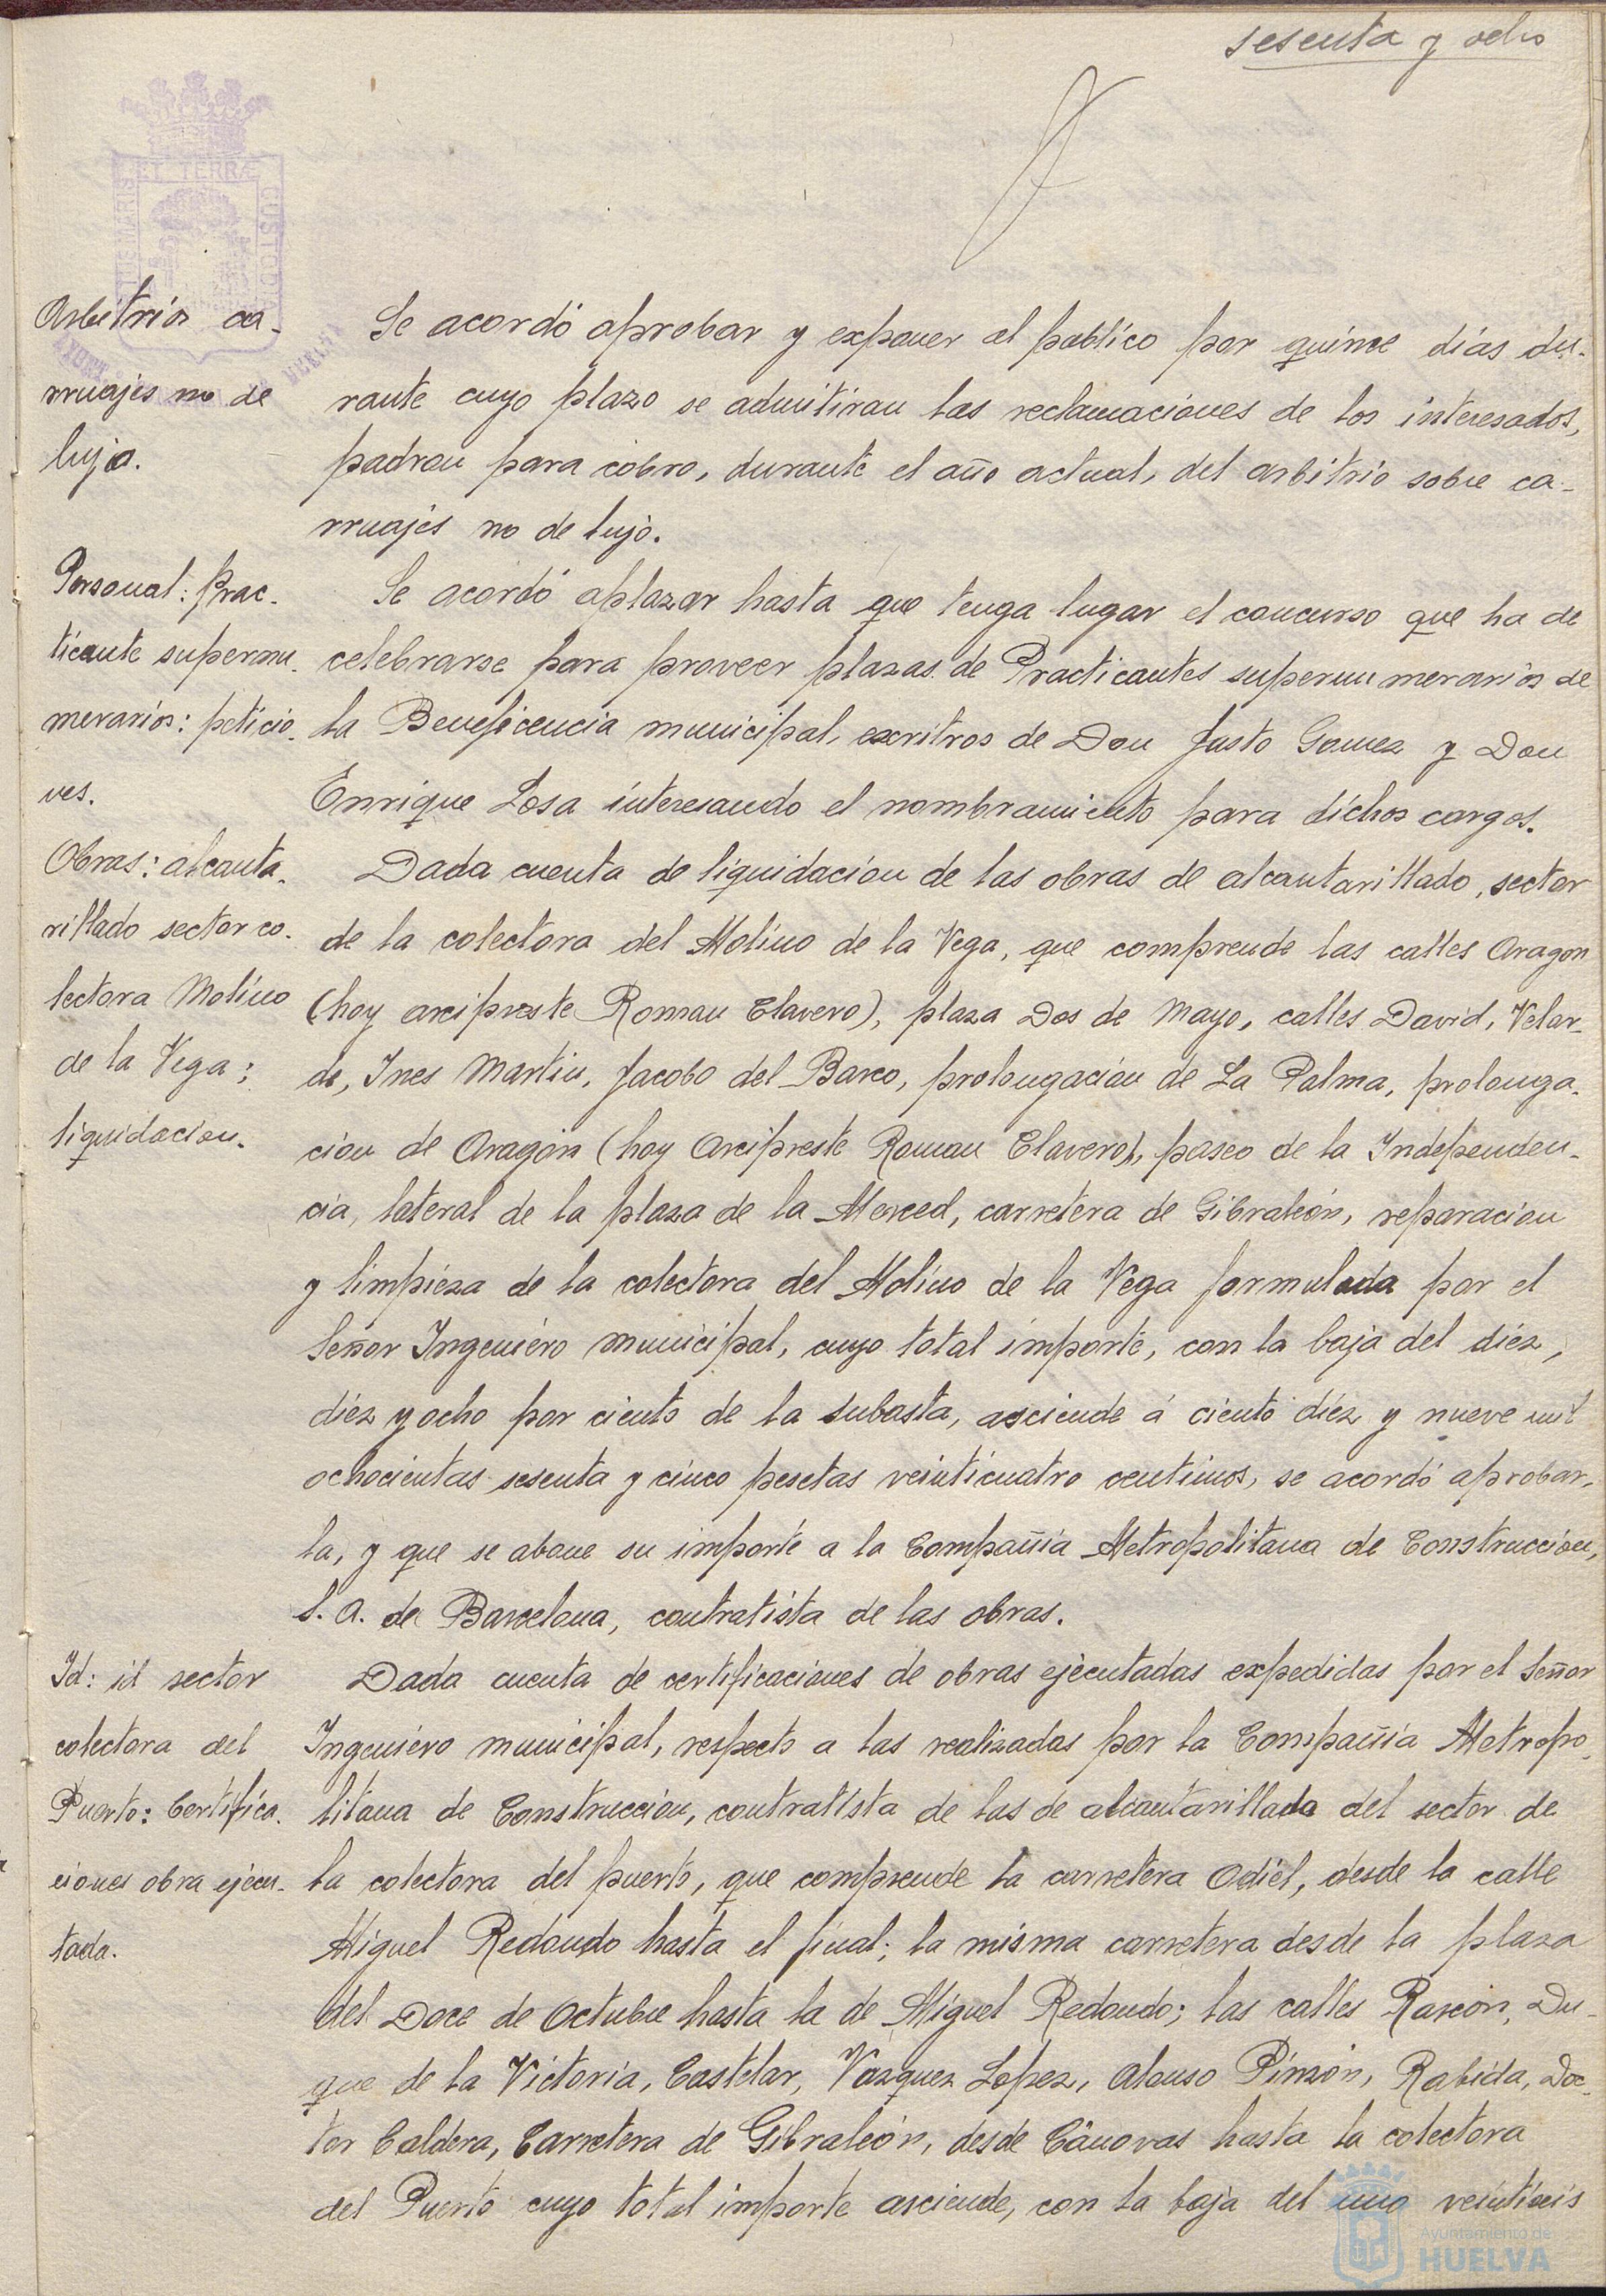 sesenta y ocho
PORTUS MARIS ET TERRÆ CUSTODIA
HUELVA
Arbitrios ca-
rruajes no de
lujo.
Se acordó aprobar y exponer al publico por quince dias du-
rante cuyo plazo se admitiran las reclamaciones de los interesados,
padron para cobro, durante el año actual, del arbitrio sobre ca-
rruajes no de lujo.
Personal: Prac-
ticante supernu-
merarios: peticio-
nes.
Se acordó aplazar hasta que tenga lugar el concurso que ha de
celebrarse para proveer plazas de Practicantes supernumerarios de
la Beneficencia municipal, escritros de Don Justo Gomez y Don
Enrique Losa interesando el nombramiento para dichos cargos.
Obras: alcanta-
rillado sector co-
lectora Molino
de la Vega:
liquidacion.
Dada cuenta de liquidacion de las obras de alcantarillado, sector
de la colectora del Molino de la Vega, que comprende las calles Aragon
(hoy arcipreste Roman Clavero), plaza Dos de Mayo, calles David, Velar-
de, Ines Martin, Jacobo del Barco, prolongación de La Palma, prolonga-
cion de Aragón (hoy Arcipreste Roman Clavero), paseo de la Independen-
cia, lateral de la plaza de la Merced, carretera de Gibraleón, reparacion
y limpieza de la colectora del Molino de la Vega formulada por el
Señor Ingeniero municipal, cuyo total importe, con la baja del diez,
diez y ocho por ciento de la subasta, asciende á ciento diez y nueve mil
ochocientas sesenta y cinco pesetas veinticuatro centimos, se acordó aprobar-
la, y que se abone su importe a la Compañía Metropolitana de Construccion,
S. A. de Barcelona, contratista de las obras.
Id: id sector
colectora del
Puerto: Certifica-
ciones obra ejecu-
tada.
Dada cuenta de certificaciones de obras ejecutadas expedidas por el Señor
Ingeniero municipal, respecto a las realizadas por la Compañía Metropo-
litana de Construccion, contratista de las de alcantarillado del sector de
la colectora del puerto, que comprende la carretera Odiel, desde la calle
Miguel Redondo hasta el final; la misma carretera desde la plaza
del Doce de Octubre hasta la de Miguel Redondo; las calles Rascón, Du-
que de la Victoria, Castelar, Vazquez Lopez, Alonso Pinzón, Rabida, Doc-
tor Caldera, Carretera de Gibraleón, desde Cánovas hasta la colectora
del Puerto cuyo total importe asciende, con la baja del uno veintiseis
Ayuntamiento de
HUELVA